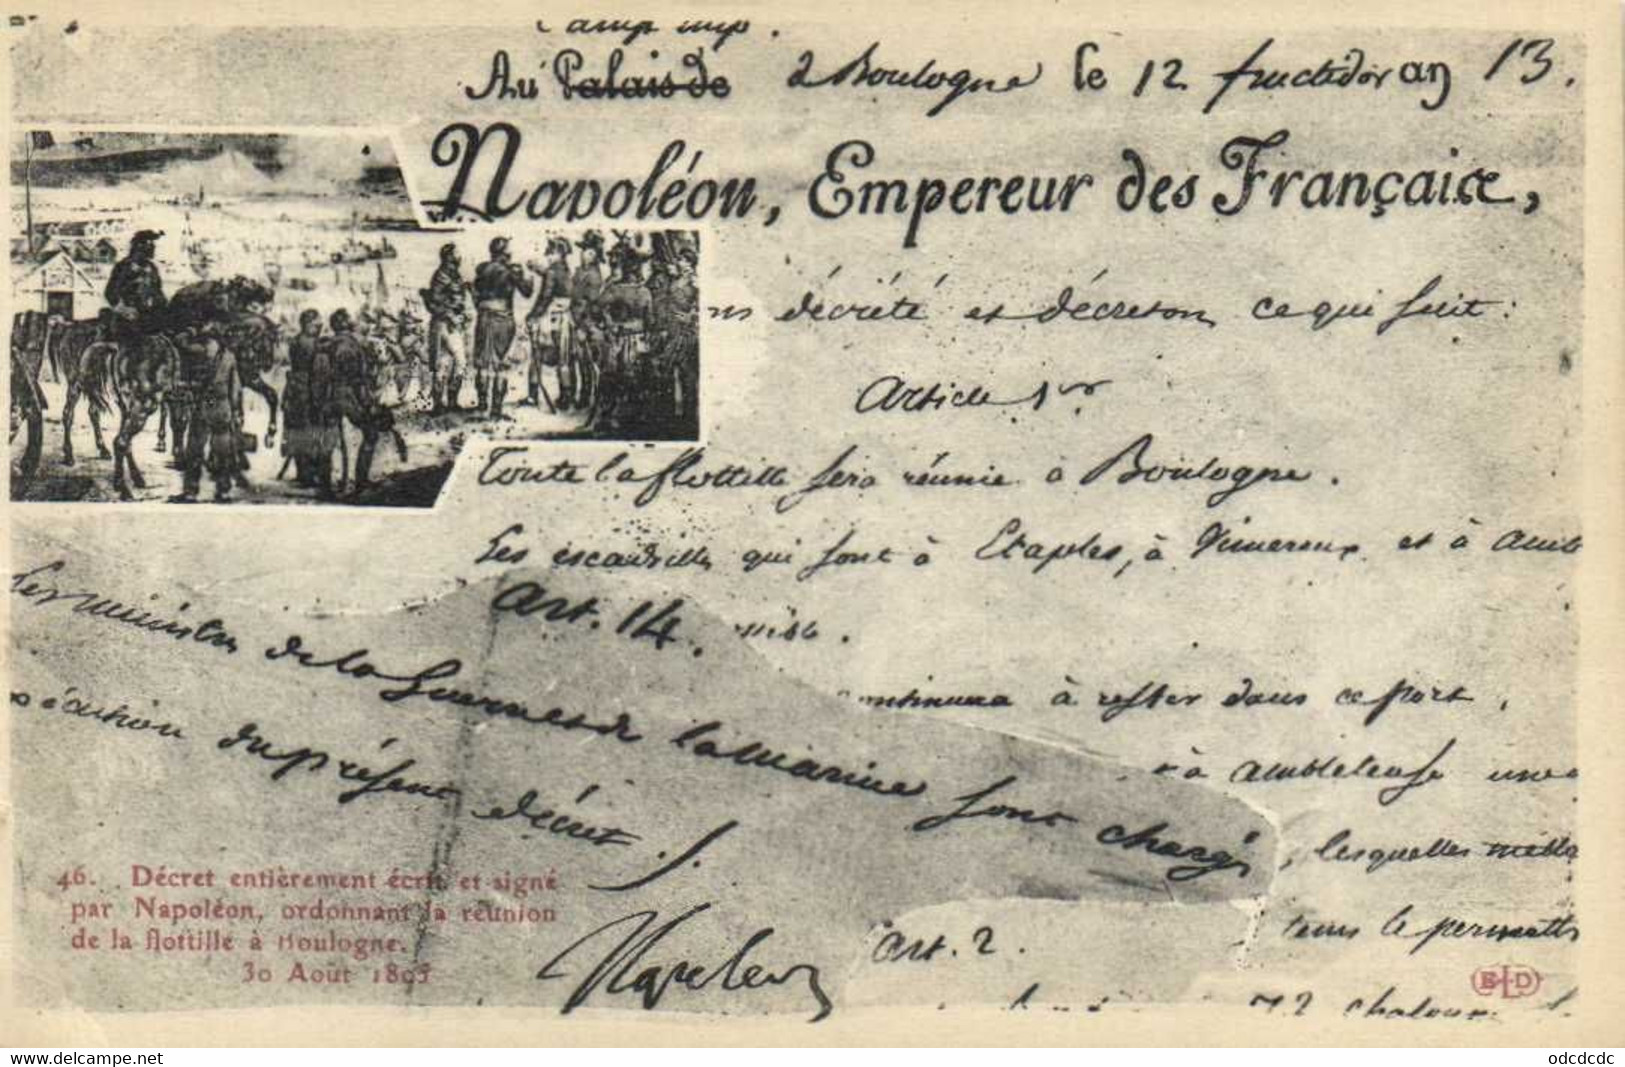 Camp imp.
Au Palais de à Boulogne le 12 fructidor an 13.
Napoléon, Empereur des Français,
ns décrété et décretons ce qui suit:
Article 1er
Toute la flottille sera réunie à Boulogne.
Les escadrilles qui sont à Etaples, à Vimereux et à Amb
Art. 14.
Les ministres de la Guerre et de la marine sont chargés
exécution du présent décret.
continuera à rester dans ce port,
à Ambleteuse une
, lesquelles
tems le permettra
Art. 2.
72 chaloupes
Napoleon
46. Décret entièrement écrit et signé
par Napoléon, ordonnant la réunion
de la flottille à Boulogne.
30 Août 1805
ELD
www.delcampe.net
odcdcdc